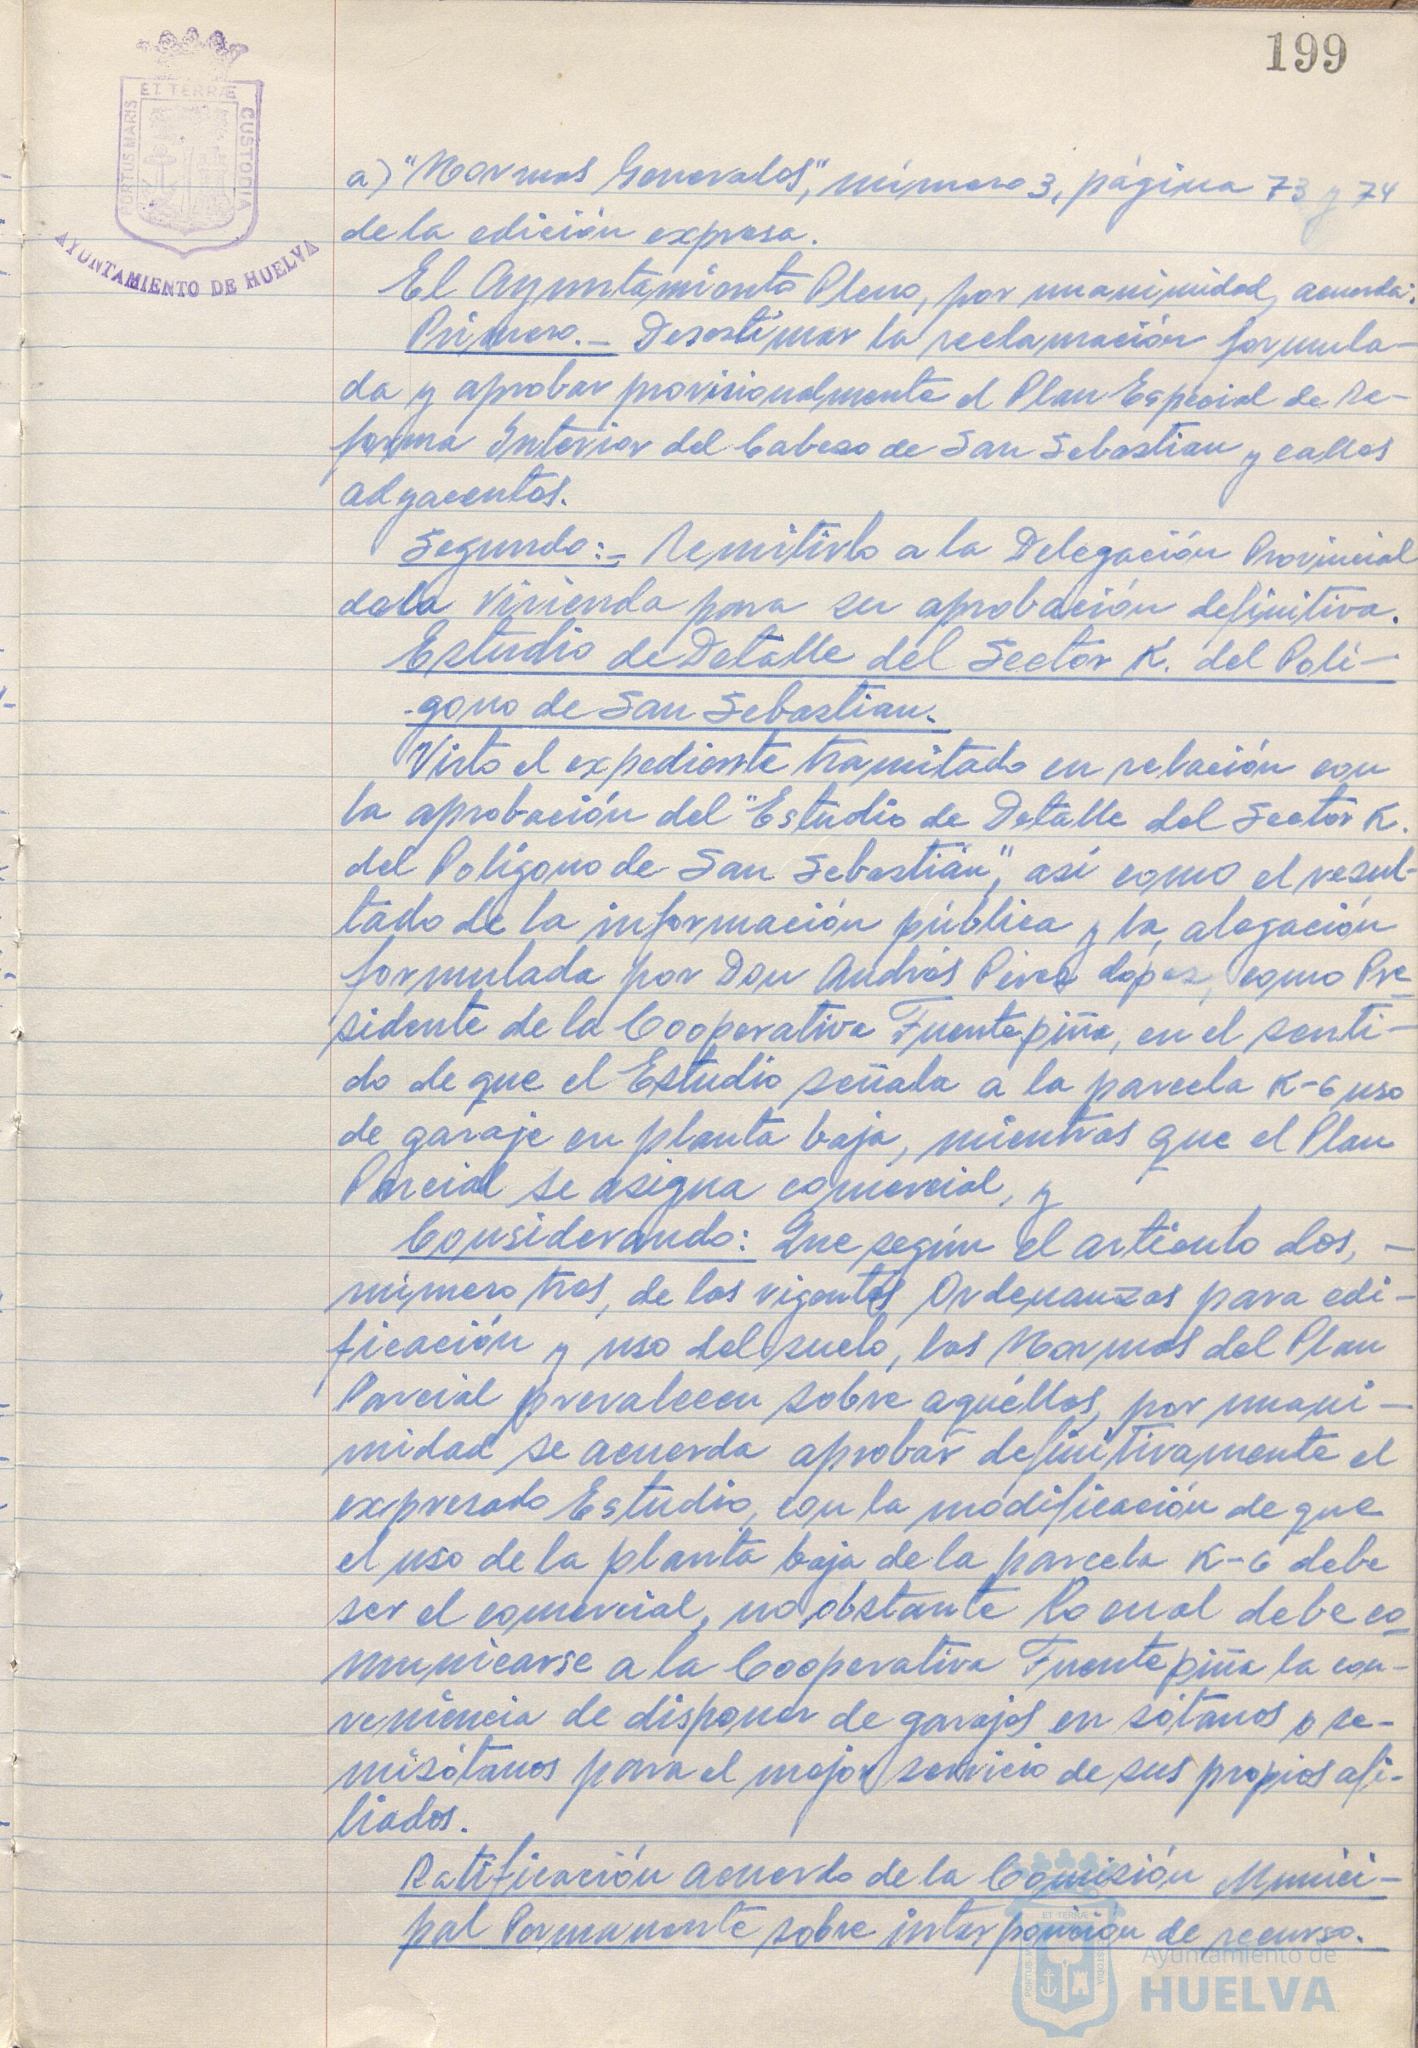 199
ET TERRÆ
PORTUS MARIS
CUSTODIA
AYUNTAMIENTO DE HUELVA
a) "Normas Generales", número 3, página 73 y 74
de la edición expresa.
El Ayuntamiento Pleno, por unanimidad, acuerda:
Primero.- Desestimar la reclamación formula-
da y aprobar provisionalmente el Plan Especial de Re-
forma Interior del Cabezo de San Sebastian y calles
adyacentes.
Segundo:- Remitirlo a la Delegación Provincial
de la Vivienda para su aprobación definitiva.
Estudio de Detalle del Sector K. del Polí-
-gono de San Sebastian.
Visto el expediente tramitado en relación con
la aprobación del "Estudio de Detalle del Sector K.
del Polígono de San Sebastián", así como el resul-
tado de la información pública y la alegación
formulada por Don Andrés Pérez López, como Pre-
sidente de la Cooperativa Fuentepiña, en el senti-
do de que el Estudio señala a la parcela K-6 uso
de garaje en planta baja, mientras que el Plan
Parcial se asigna comercial, y
Considerando: Que según el artículo dos, -
número tres, de las vigentes Ordenanzas para edi-
ficación y uso del suelo, las Normas del Plan
Parcial prevalecen sobre aquéllas, por unani-
midad se acuerda aprobar definitivamente el
expresado Estudio, con la modificación de que
el uso de la planta baja de la parcela K-6 debe
ser el comercial, no obstante lo cual debe co-
municarse a la Cooperativa Fuentepiña la con-
veniencia de disponer de garajes en sótanos o se-
misótanos para el mejor servicio de sus propios afi-
liados.
Ratificación acuerdo de la Comisión Munici-
pal Permanente sobre interposición de recurso.
Ayuntamiento de
HUELVA